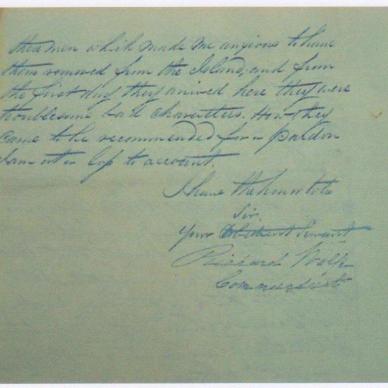 these men which made me anxious to have
them removed from the Island, and from
the first day they arrived here they were
troublesome bad characters. How they
came to be recommended for a pardon
I am at a loss to account.
I have the honor to be
Sir.
Your Obedient Servant
Richard